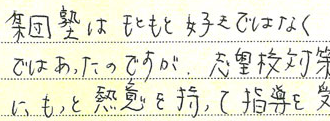 集団塾はもともと好きではなく
ではあったのですが、志望校対策
に、もっと熱意を持って指導を受